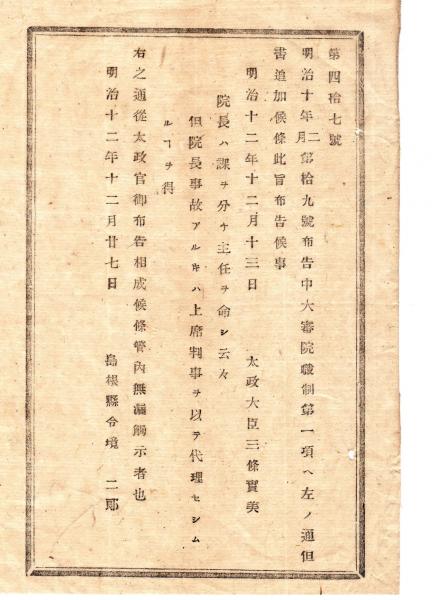 第四拾七號
明治十年二月第拾九號布告中大審院職制第一項ヘ左ノ通但
書追加候條此旨布告候事
明治十二年十二月十三日　太政大臣三條實美
院長ハ課ヲ分ケ主任ヲ命シ云々
但院長事故アルキハ上席判事ヲ以テ代理セシム
ルヿヲ得
右之通從太政官御布告相成候條管內無漏觸示者也
明治十二年十二月廿七日　島根縣令境　二郎